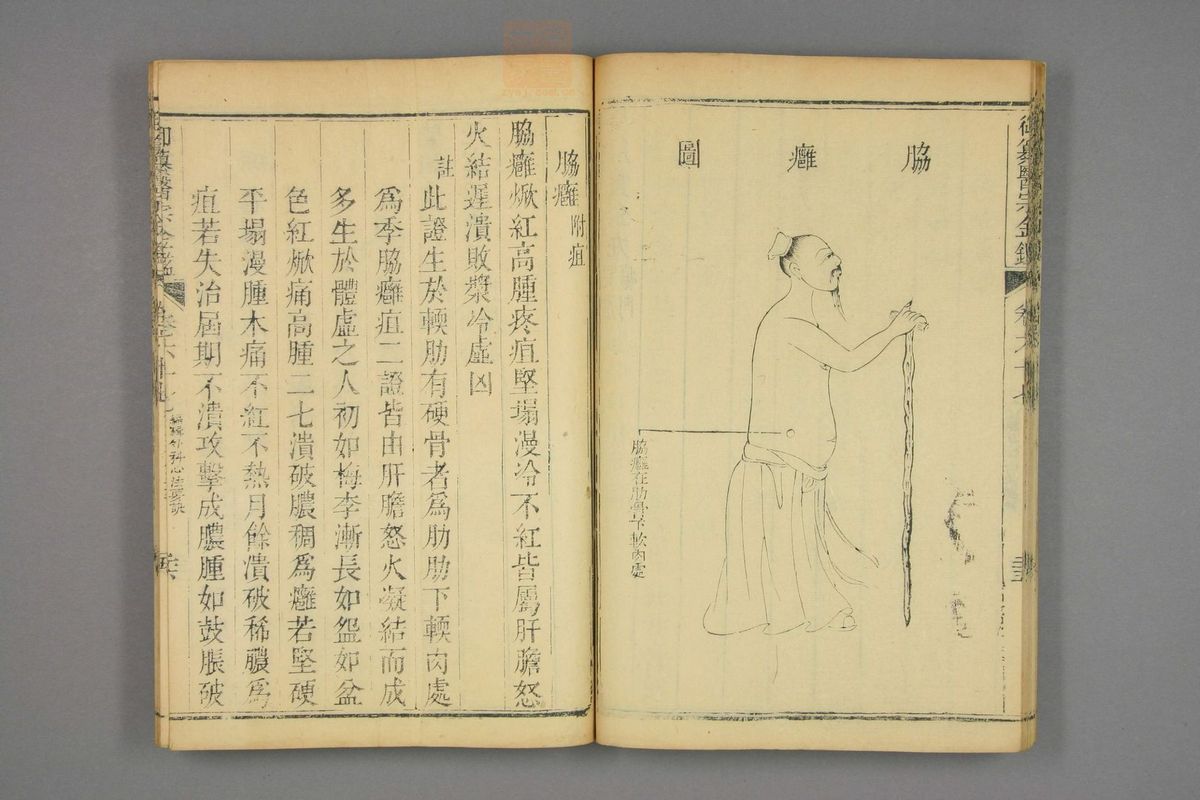 脇癰圖
脇癰在肋骨下軟肉處
脇癰附疽
脇癰焮紅高腫疼疽堅塌漫冷不紅皆屬肝膽怒
火結遲潰敗漿冷虛凶
註此證生於輭肋有硬骨者為肋肋下輭肉處
為季脇癰疽二證皆由肝膽怒火凝結而成
多生於體虛之人初如梅李漸長如盌如盆
色紅焮痛高腫二七潰破膿稠為癰若堅硬
平塌漫腫木痛不紅不熱月餘潰破稀膿為
疽若失治屆期不潰攻擊成膿腫如鼓脹破
御纂醫宗金鑑
卷六十七
編輯外科心法要訣